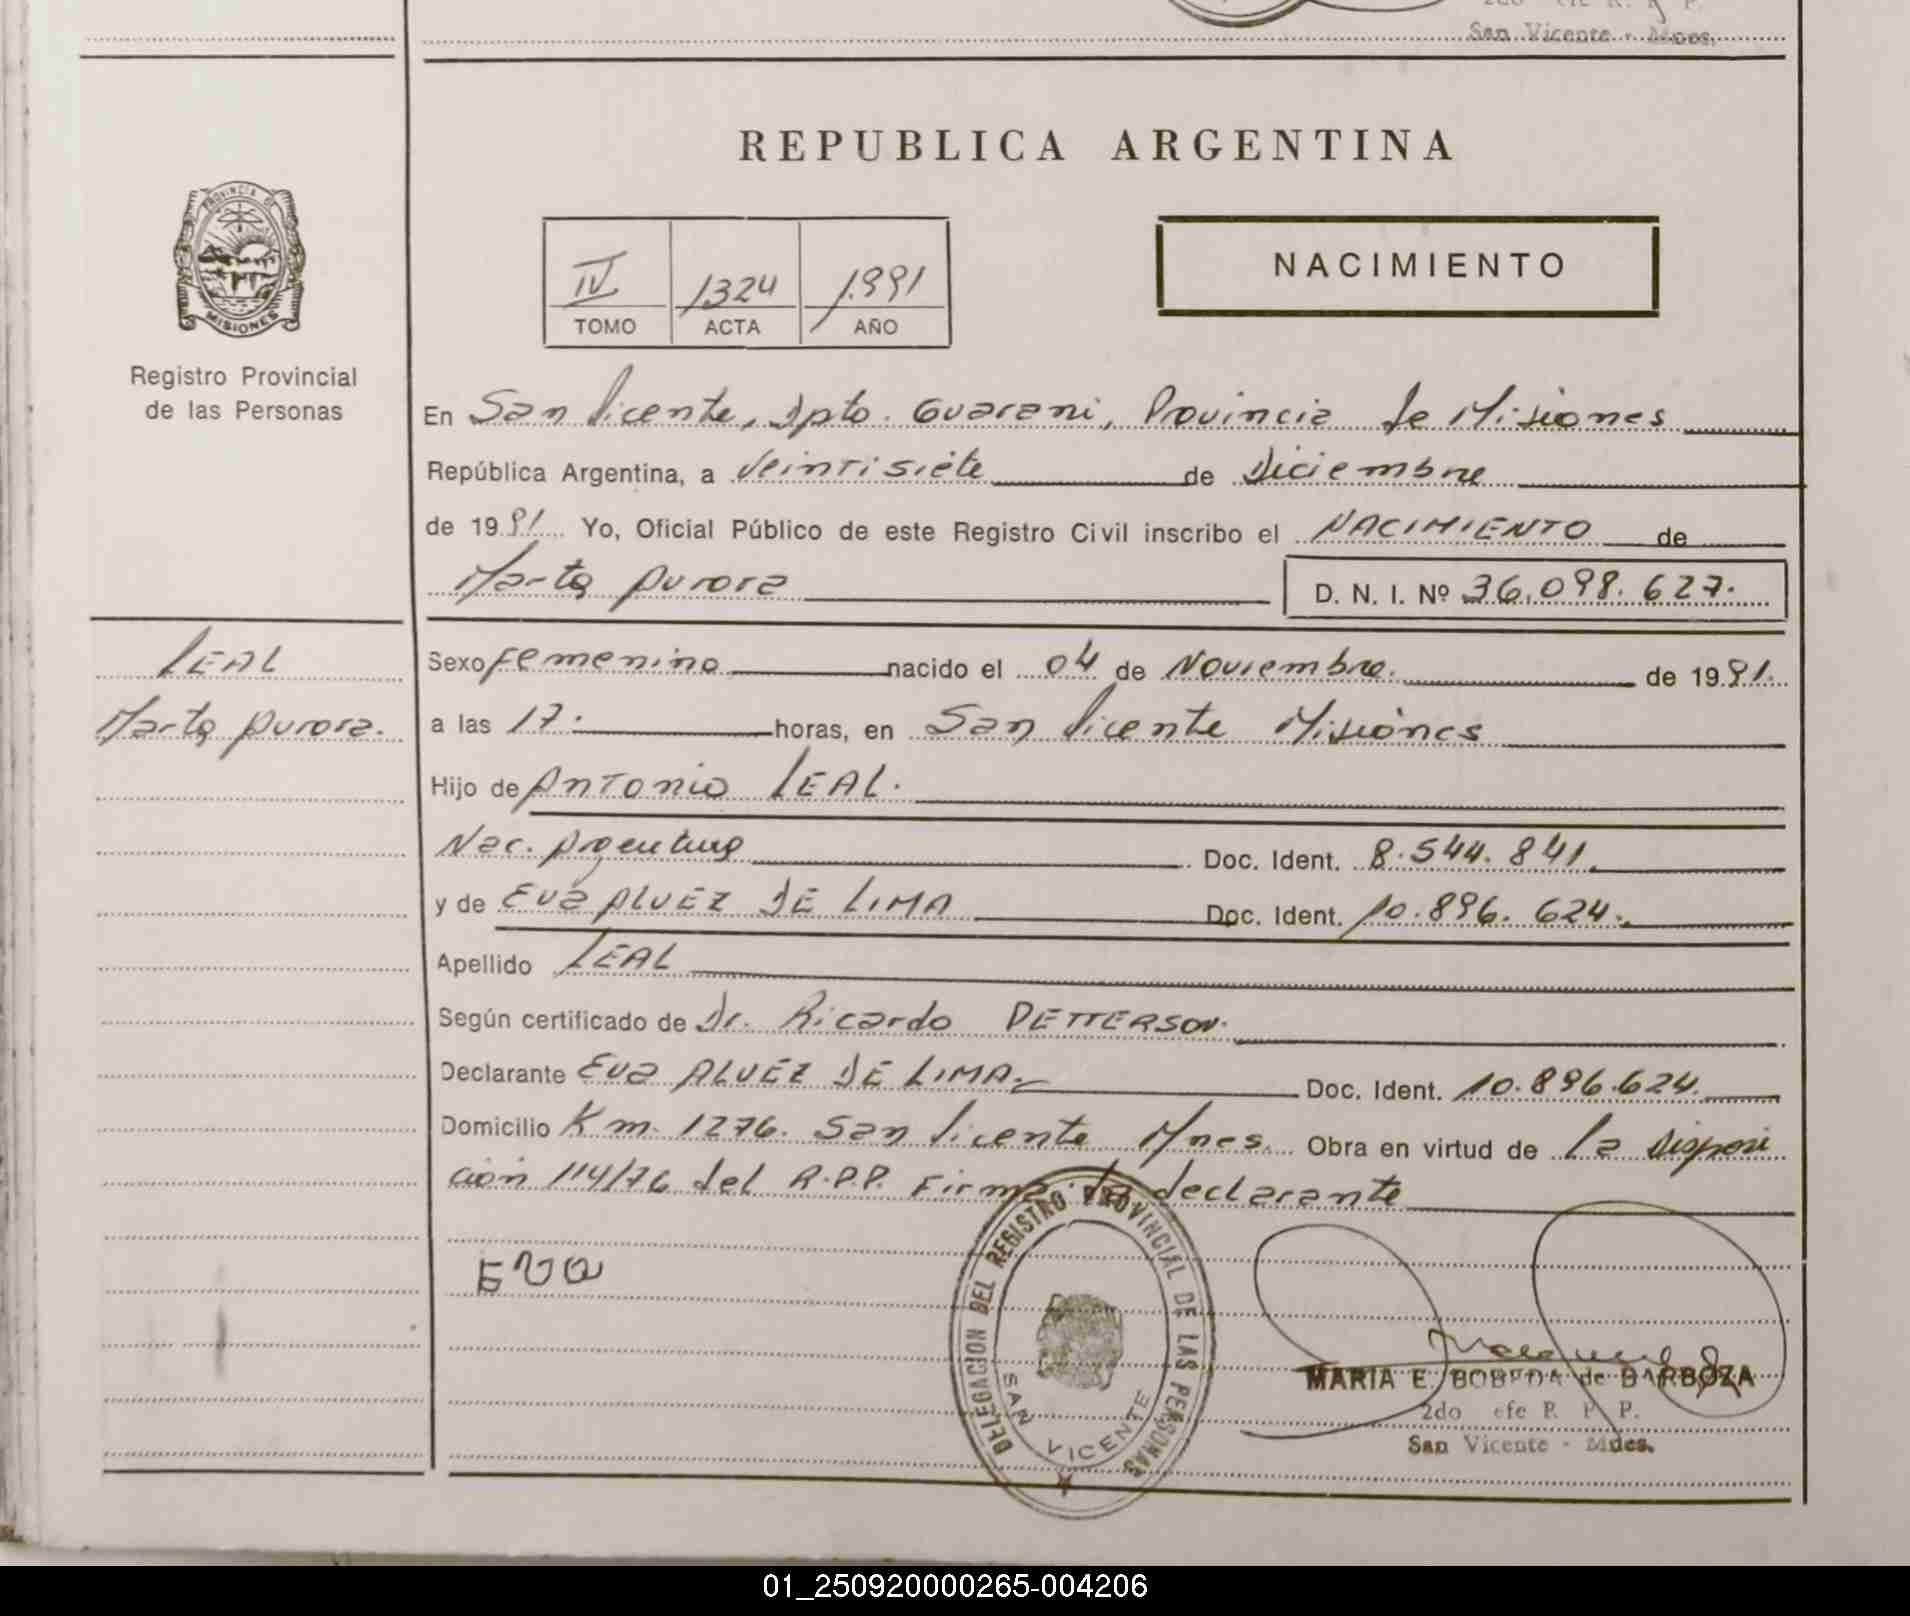 San Vicente - Mnes.
REPUBLICA ARGENTINA
PROVINCIA DE
MISIONES
Registro Provincial
de las Personas
IV 1324 1.991
TOMO ACTA AÑO
NACIMIENTO
En San Vicente, Dpto. Guarani, Provincia de Misiones
República Argentina, a Veintisiete de Diciembre
de 1991 Yo, Oficial Público de este Registro Civil inscribo el NACIMIENTO de
Marta Aurora D. N. I. Nº 36.098.627.
LEAL
Marta Aurora.
Sexo Femenino nacido el 04 de Noviembre. de 1991.
a las 17. horas, en San Vicente Misiones
Hijo de Antonio LEAL.
Nac. Argentina Doc. Ident. 8.544.841.
y de Eva ALVEZ DE LIMA Doc. Ident. 10.896.624.
Apellido LEAL
Según certificado de Dr. Ricardo PETTERSON.
Declarante Eva ALVEZ DE LIMA. Doc. Ident. 10.896.624.
Domicilio Km. 1276. San Vicente Mnes. Obra en virtud de la Disposi
ción 114/76 del R.P.P. Firma la declarante
EVa
DELEGACION DEL REGISTRO PROVINCIAL DE LAS PERSONAS
SAN VICENTE
MARIA E. BOBEDA de BARBOZA
2do efe R. P. P.
San Vicente - Mnes.
01_250920000265-004206